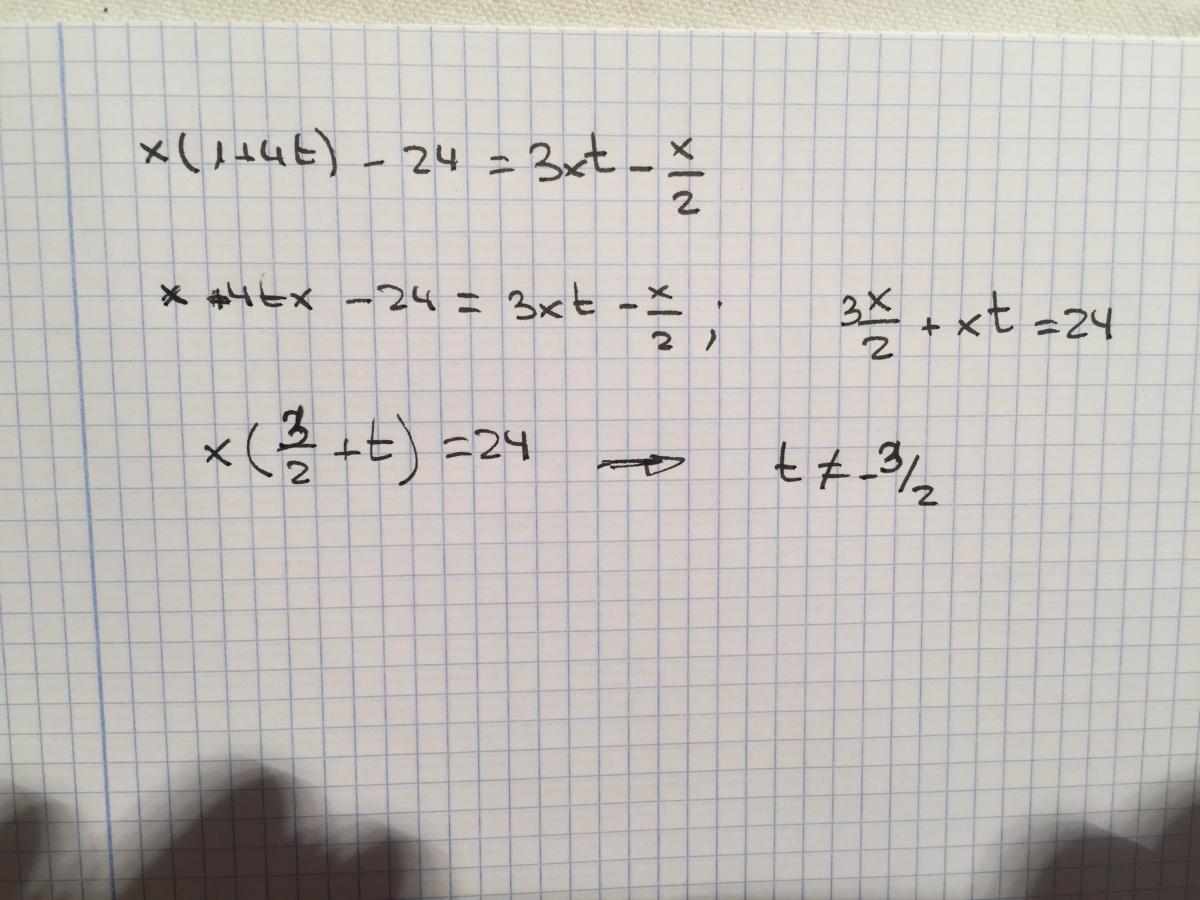 x(1+4t) - 24 = 3xt - x/2
x +4tx - 24 = 3xt - x/2 ; 3x/2 + xt = 24
x(3/2 + t) = 24 → t ≠ -3/2